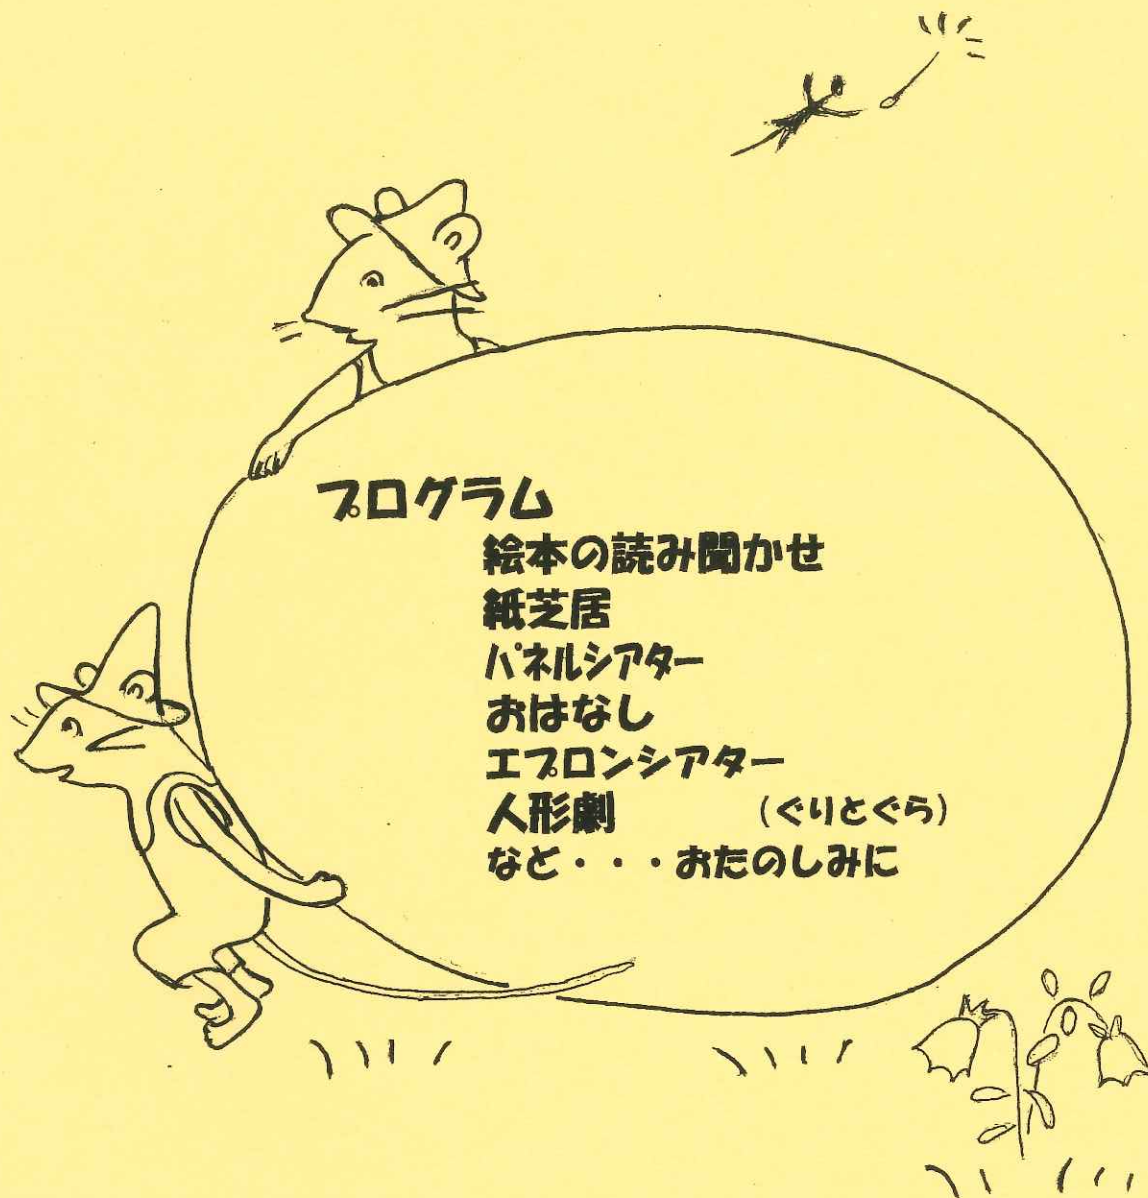 プログラム
絵本の読み聞かせ
紙芝居
パネルシアター
おはなし
エプロンシアター
人形劇 (ぐりとぐら)
など・・・おたのしみに